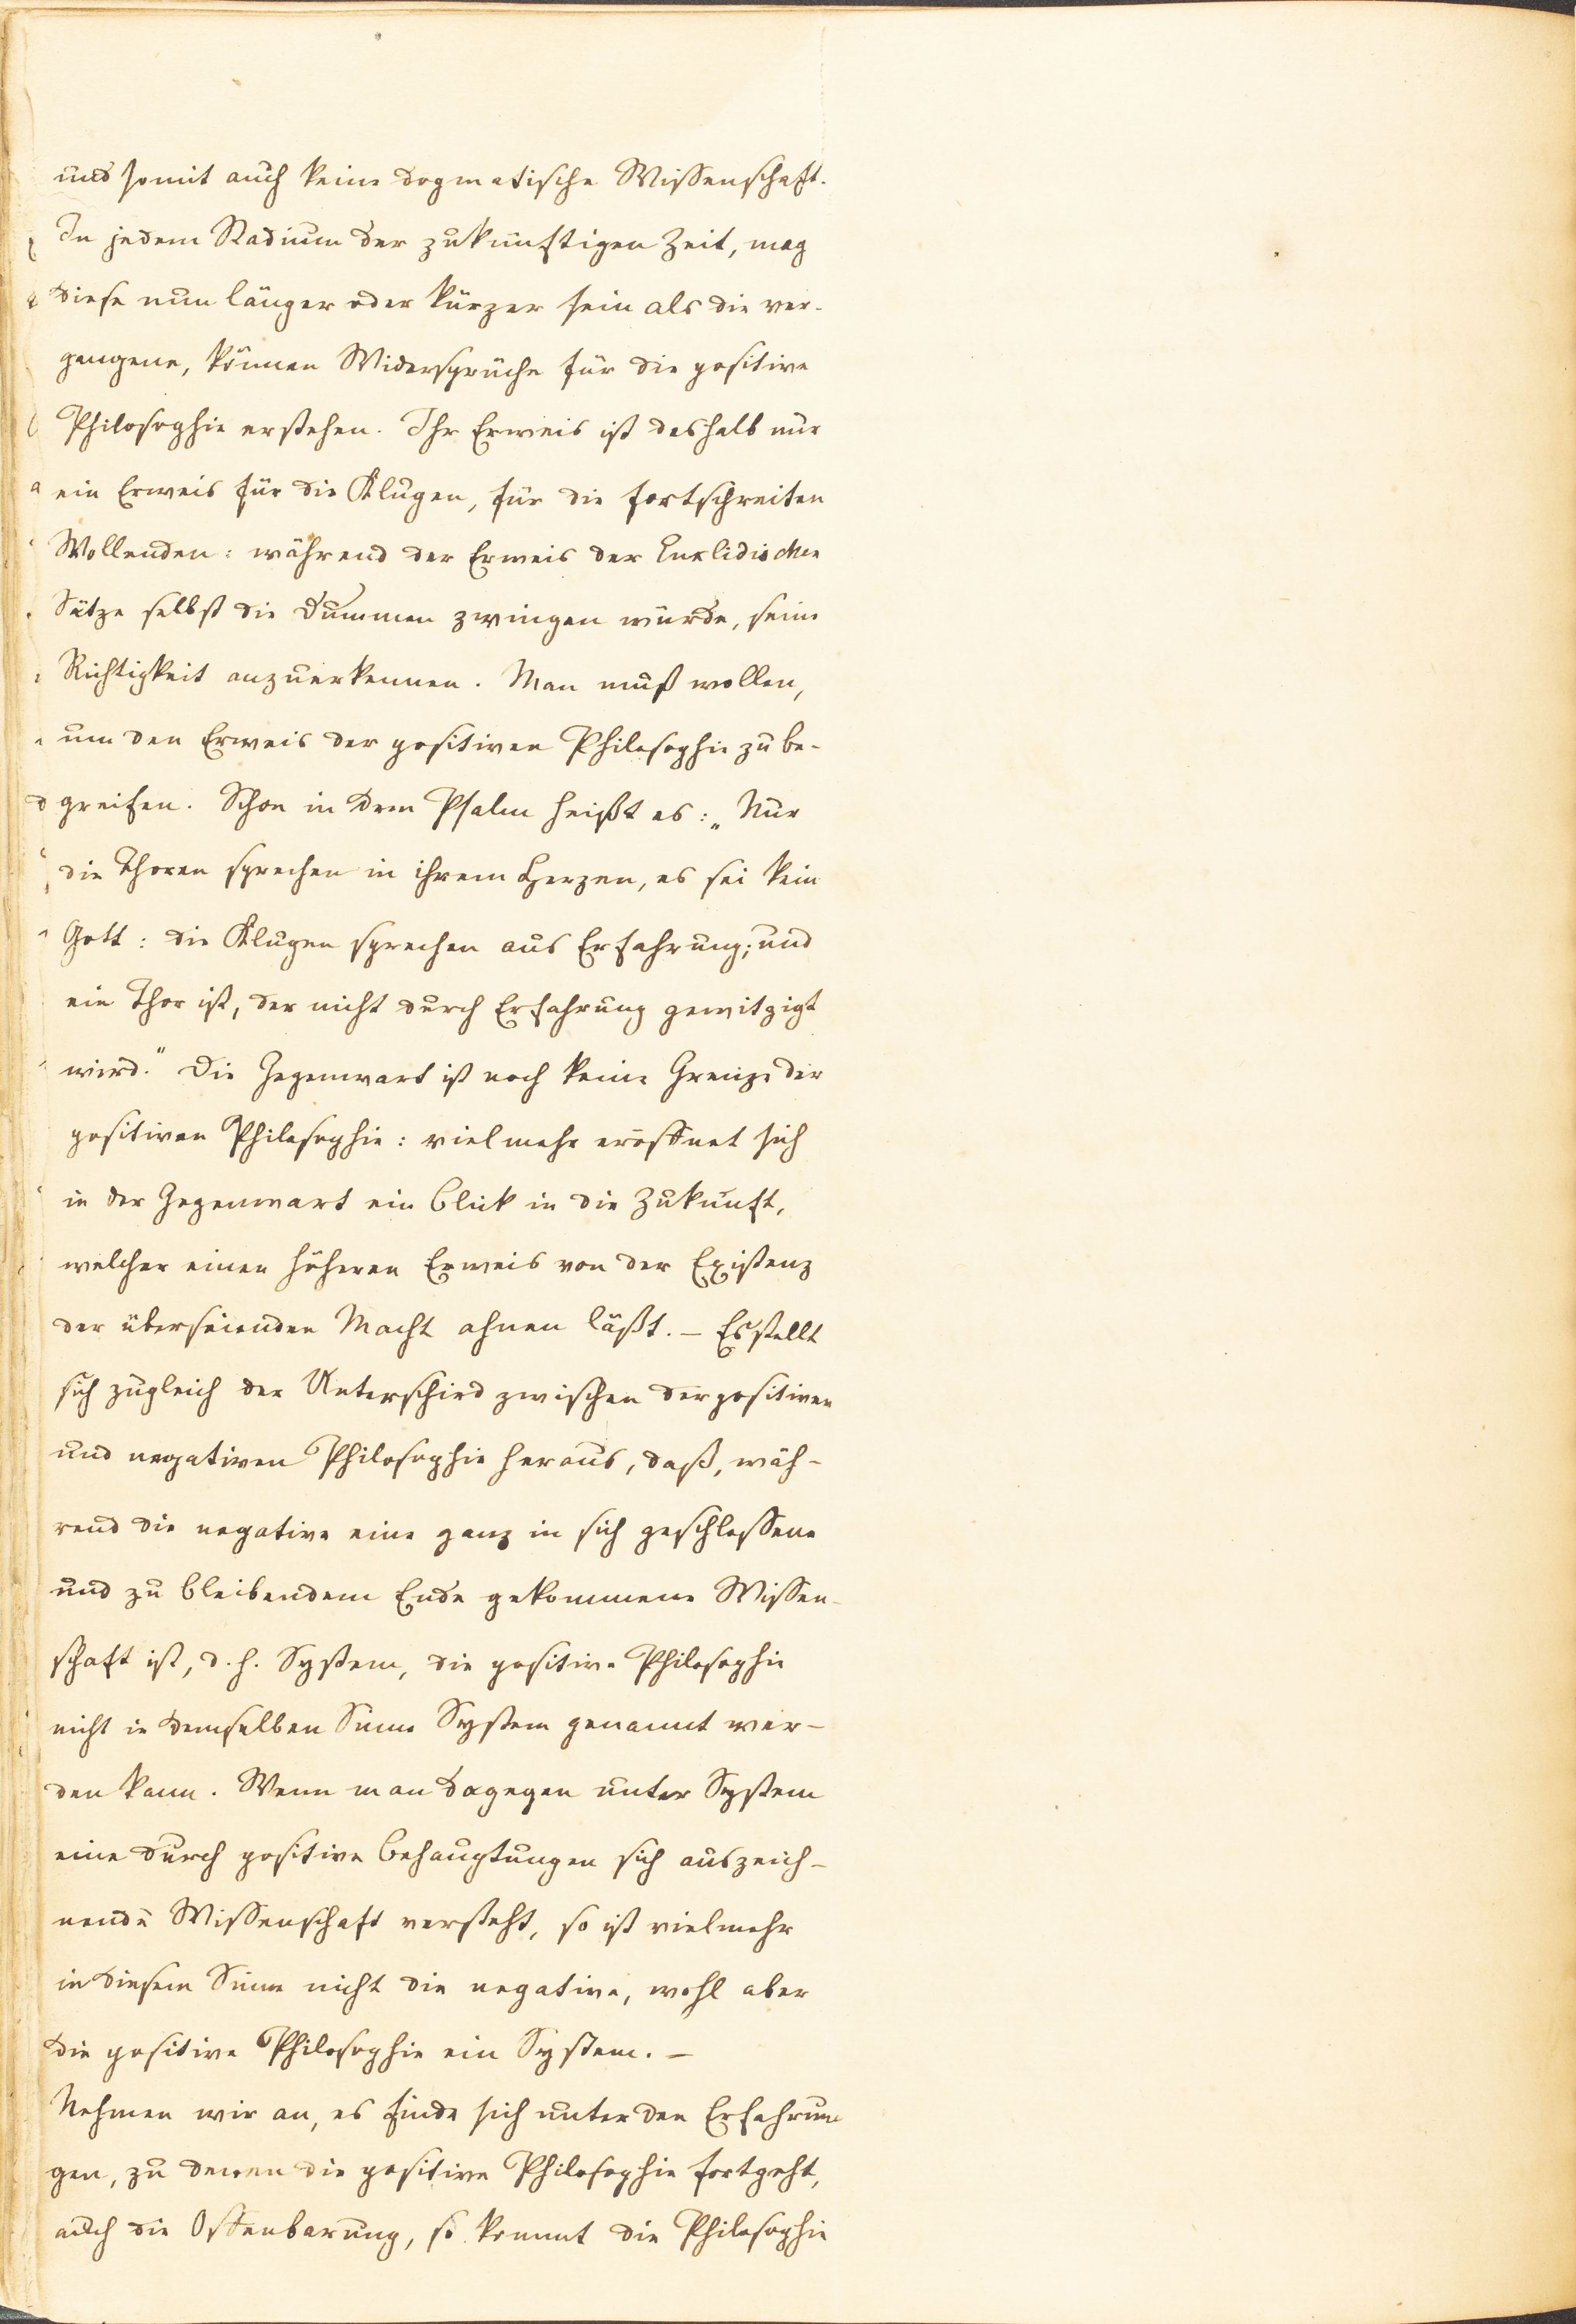 und somit auch keine dogmatische Wissenschaft.
In jedem Stadium der zukünftigen Zeit, mag
diese nun länger oder kürzer sein als die ver-
gangene, können Widersprüche für die positive
Philosophie erstehen. Ihr Erweis ist deshalb nur
ein Erweis für die Klugen, für die fortschreiten
Wollenden: während der Erweis der Euklidischen
Sätze selbst die Dummen zwingen würde, seine
Richtigkeit anzuerkennen. Man muß wollen,
um den Erweis der positiven Philosophie zu be-
greifen. Schon in dem Psalm heißt es: „Nur
die Thoren sprechen in ihrem Herzen, es sei kein
Gott: die Klugen sprechen aus Erfahrung; und
ein Thor ist, der nicht durch Erfahrung gewitzigt
wird.“ Die Gegenwart ist noch keine Grenze der
positiven Philosophie: vielmehr eröffnet sich
in der Gegenwart ein Blick in die Zukunft,
welcher einen höheren Erweis von der Existenz
der überseienden Macht ahnen läßt. – Es stellt
sich zugleich der Unterschied zwischen der positiven
und negativen Philosophie heraus, daß, wäh-
rend die negative eine ganz in sich geschlossene
und zu bleibendem Ende gekommene Wissen-
schaft ist, d. h. System, die positive Philosophie
nicht in demselben Sinne System genannt wer-
den kann. Wenn man dagegen unter System
eine durch positive Behauptungen sich auszeich-
nende Wissenschaft versteht, so ist vielmehr
in diesem Sinne nicht die negative, wohl aber
die positive Philosophie ein System. –
Nehmen wir an, es finde sich unter den Erfahrun-
gen, zu denen die positive Philosophie fortgeht,
auch die Offenbarung, so kommt die Philosophie